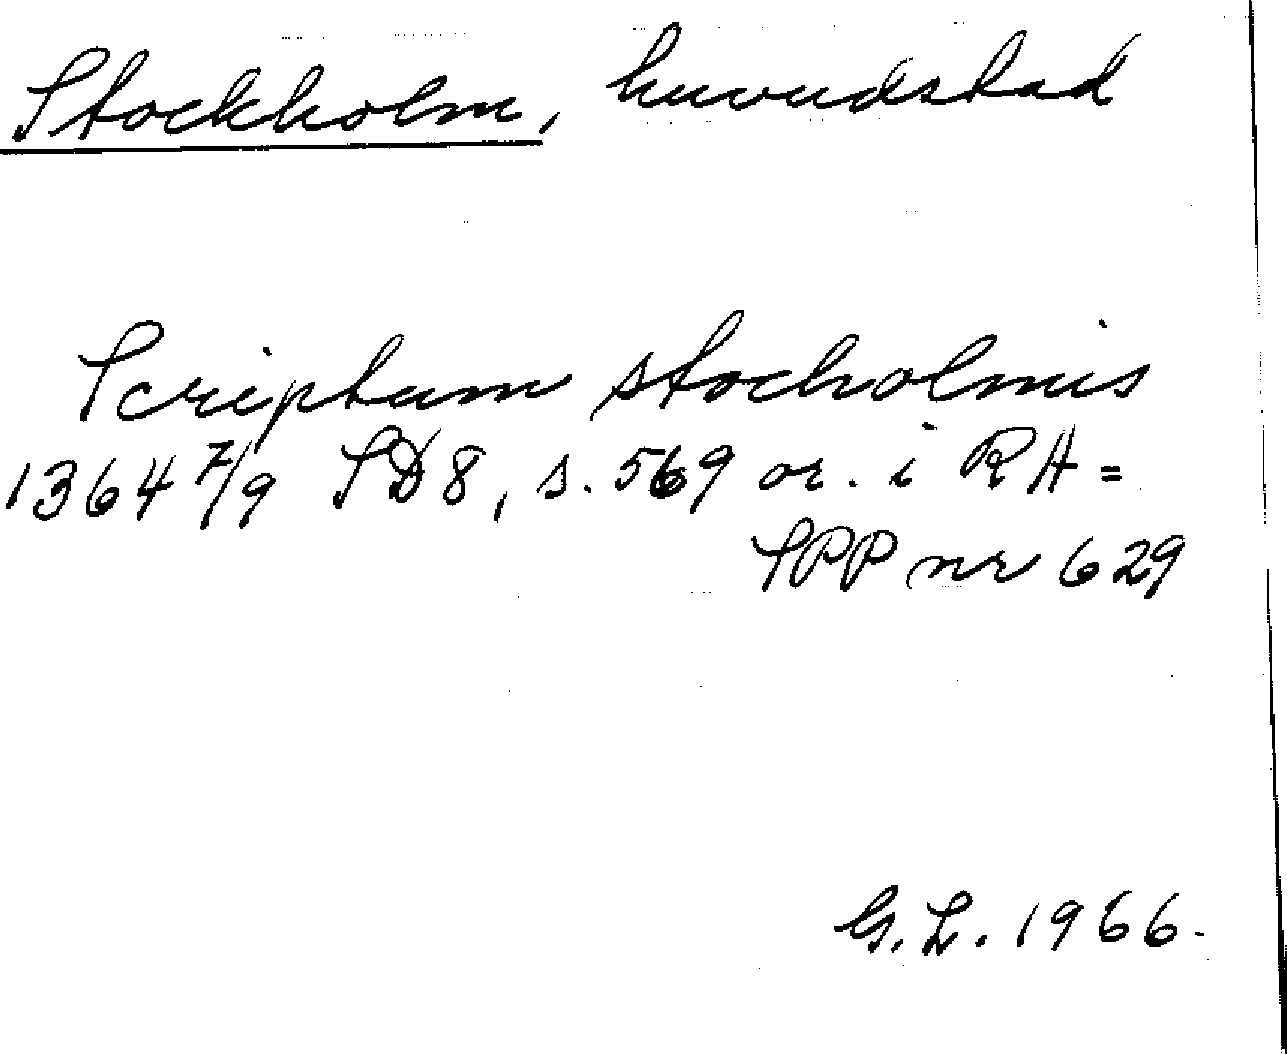 Stockholm, huvudstad
Scriptum stocholmis
1364 7/9 SD8, s. 569 or. i RA =
SPP nr 629
G. L. 1966.